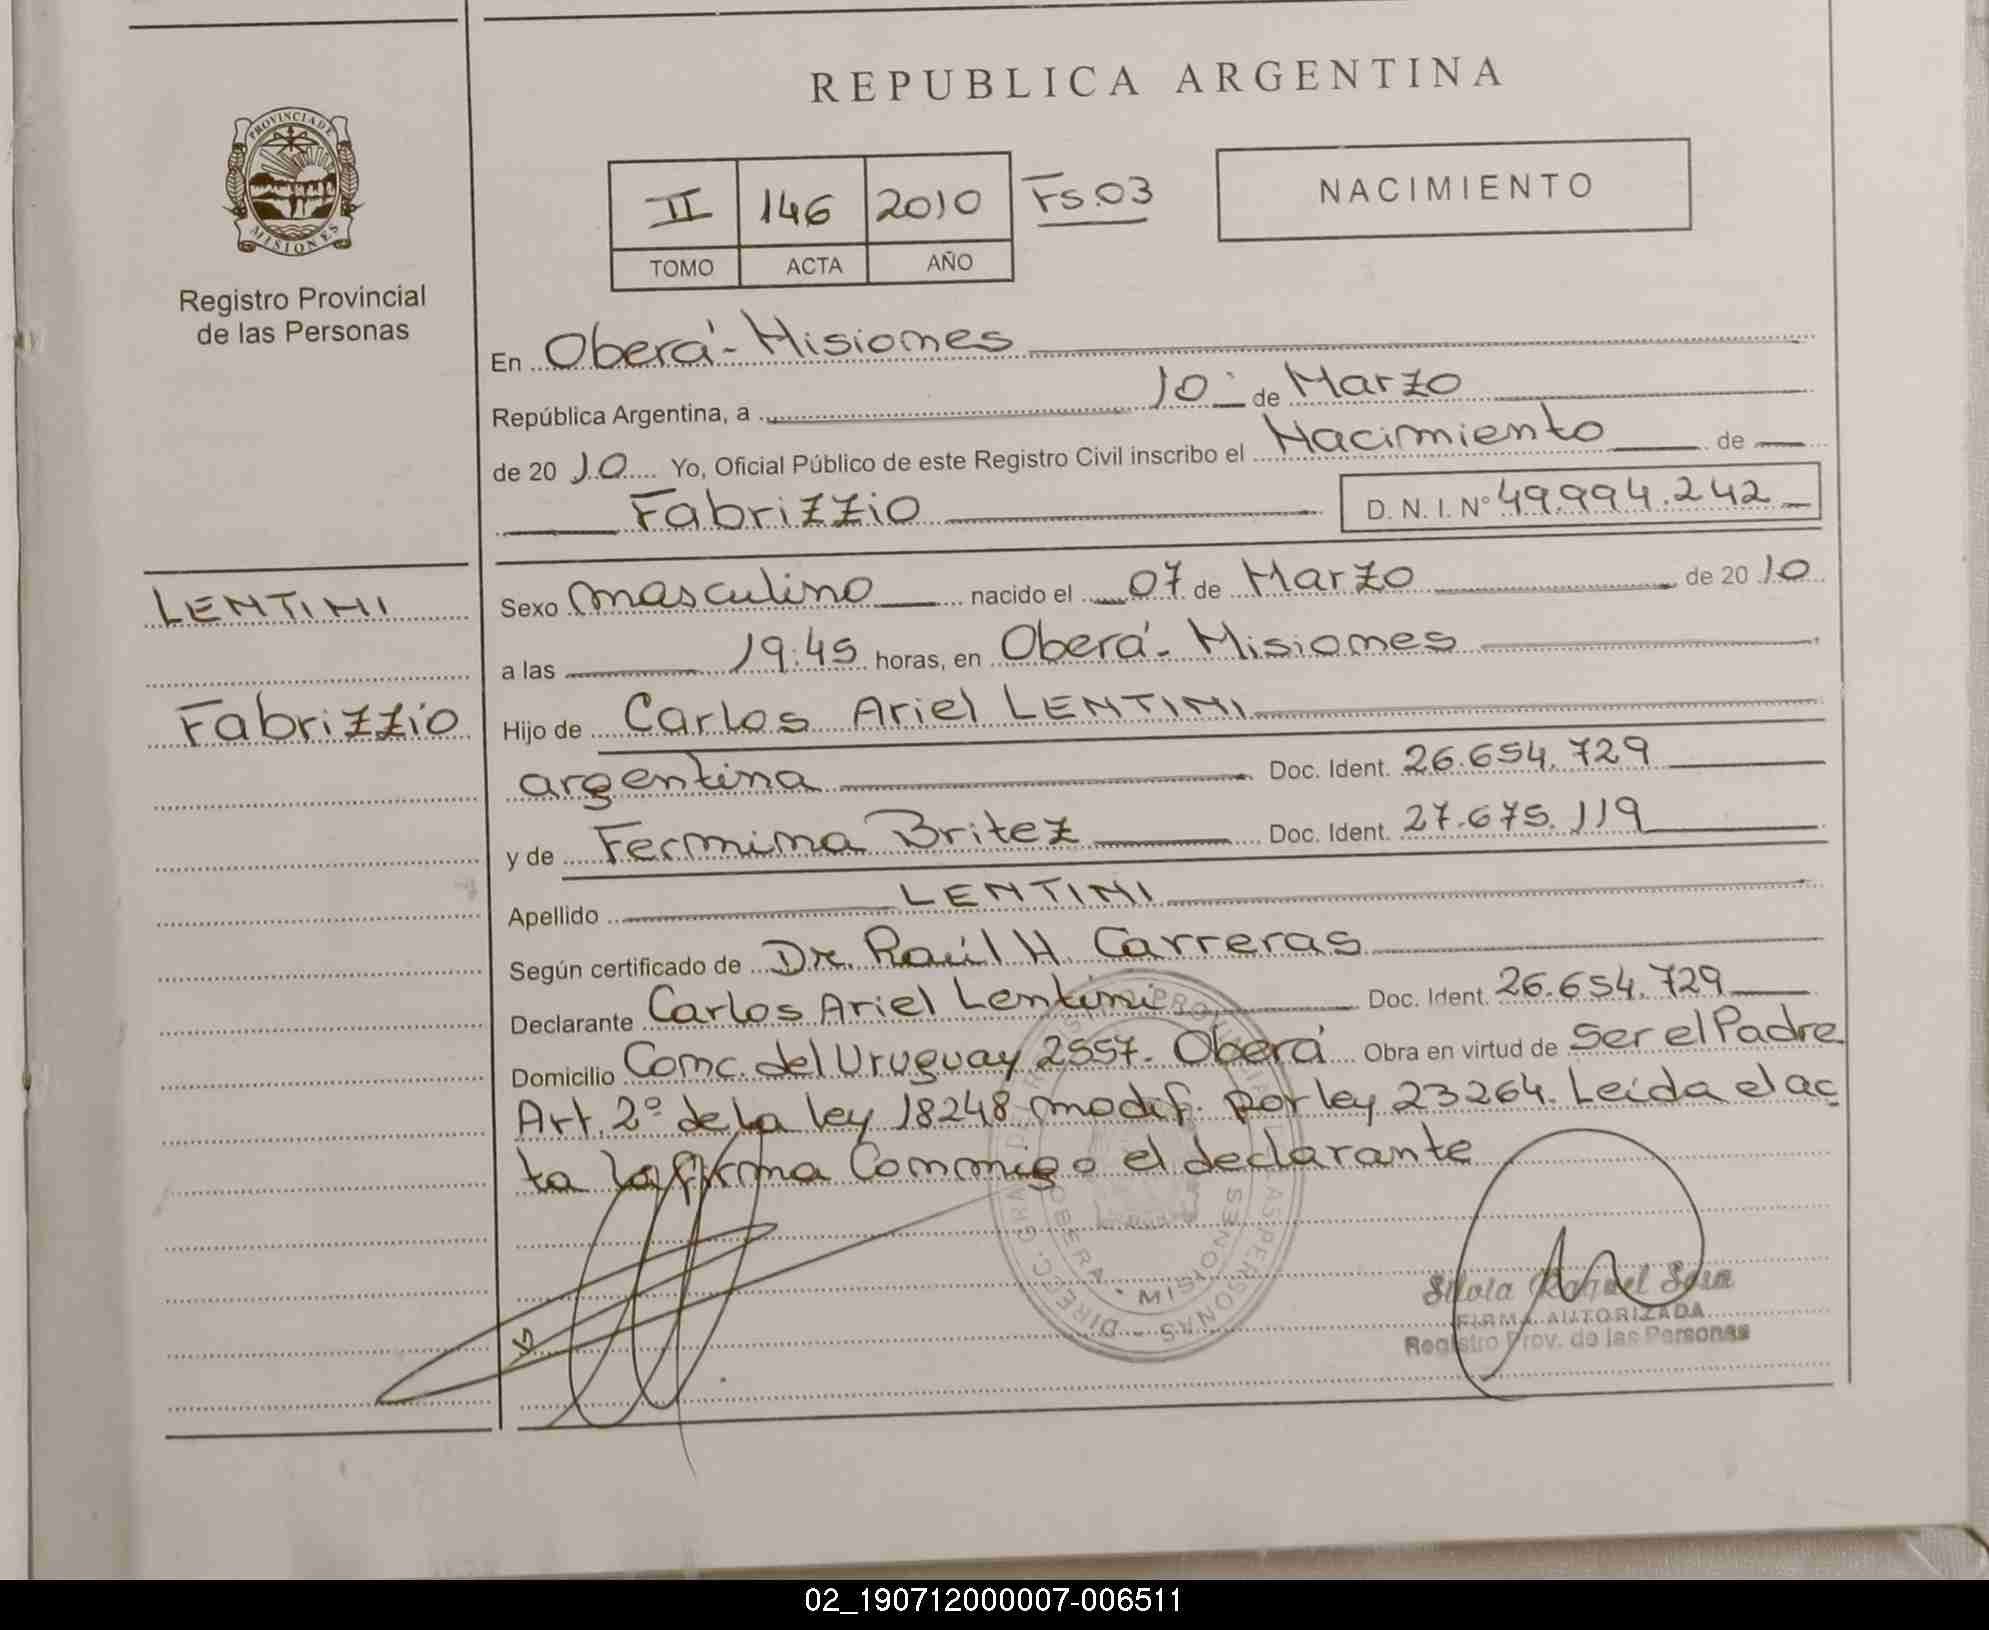 REPUBLICA ARGENTINA
PROVINCIA DE
MISIONES
Registro Provincial
de las Personas
II 146 2010 Fs.03
TOMO ACTA AÑO
NACIMIENTO
En Oberá - Misiones
República Argentina, a 10 de Marzo
de 20 10 Yo, Oficial Público de este Registro Civil inscribo el Nacimiento de
Fabrizzio D. N. I. Nº 49.994.242
LENTINI
Fabrizzio
Sexo masculino nacido el 07 de Marzo de 20 10
a las 19:45 horas, en Oberá - Misiones
Hijo de Carlos Ariel LENTINI
argentina Doc. Ident. 26.654.729
y de Fermina Britez Doc. Ident. 27.675.119
Apellido LENTINI
Según certificado de Dr. Raúl H. Carreras
Declarante Carlos Ariel Lentini Doc. Ident. 26.654.729
Domicilio Conc. del Uruguay 2557. Oberá Obra en virtud de Ser el Padre
Art. 2º de la ley 18248 modif. por ley 23264. Leída el ac
ta la firma Conmigo el declarante
OBERA • MISIONES
Silvia Raquel Sosa
FIRMA AUTORIZADA
Registro Prov. de las Personas
02_190712000007-006511